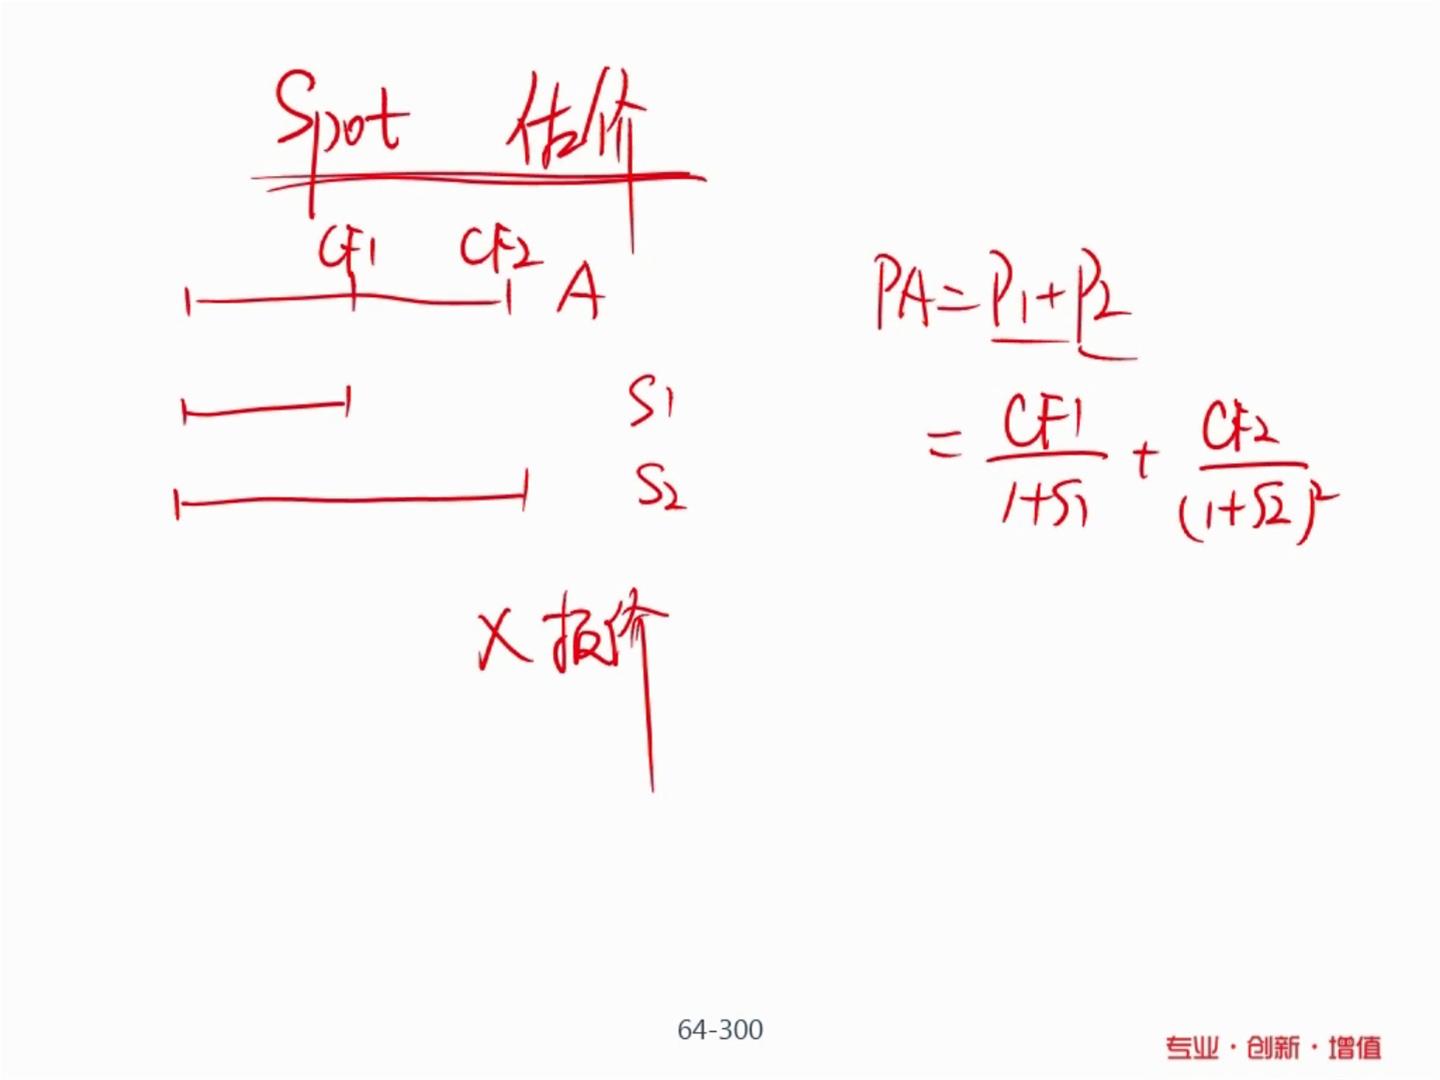 Spot 估价
CF1 CF2
A
PA=P1+P2
S1
= CF1/1+S1 + CF2/(1+S2)²
S2
X 报价
64-300
专业·创新·增值